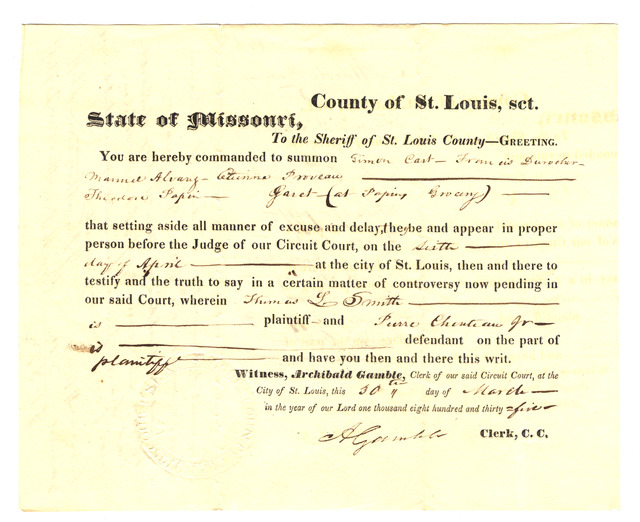 County of St. Louis, sct.
State of Missouri,
To the Sheriff of St. Louis County—GREETING.
You are hereby commanded to summon Simon Cart - Francis Durocher-
Manuel Alvarez - Etienne Proveau
Theodore Papin — Garet - (at Papins
that setting aside all manner of excuse and delay, they be and appear in proper
person before the Judge of our Circuit Court, on the sixth
day of April at the city of St. Louis, then and there to
testify and the truth to say in a certain matter of controversy now pending in
our said Court, wherein Thomas L. Smith
is plaintiff and Pierre Chouteau Jr
is defendant on the part of
plaintiff and have you then and there this writ.
Witness, Archibald Gamble, Clerk of our said Circuit Court, at the
City of St. Louis, this 30th day of March
in the year of our Lord one thousand eight hundred and thirty-five
A Gamble Clerk, C. C.